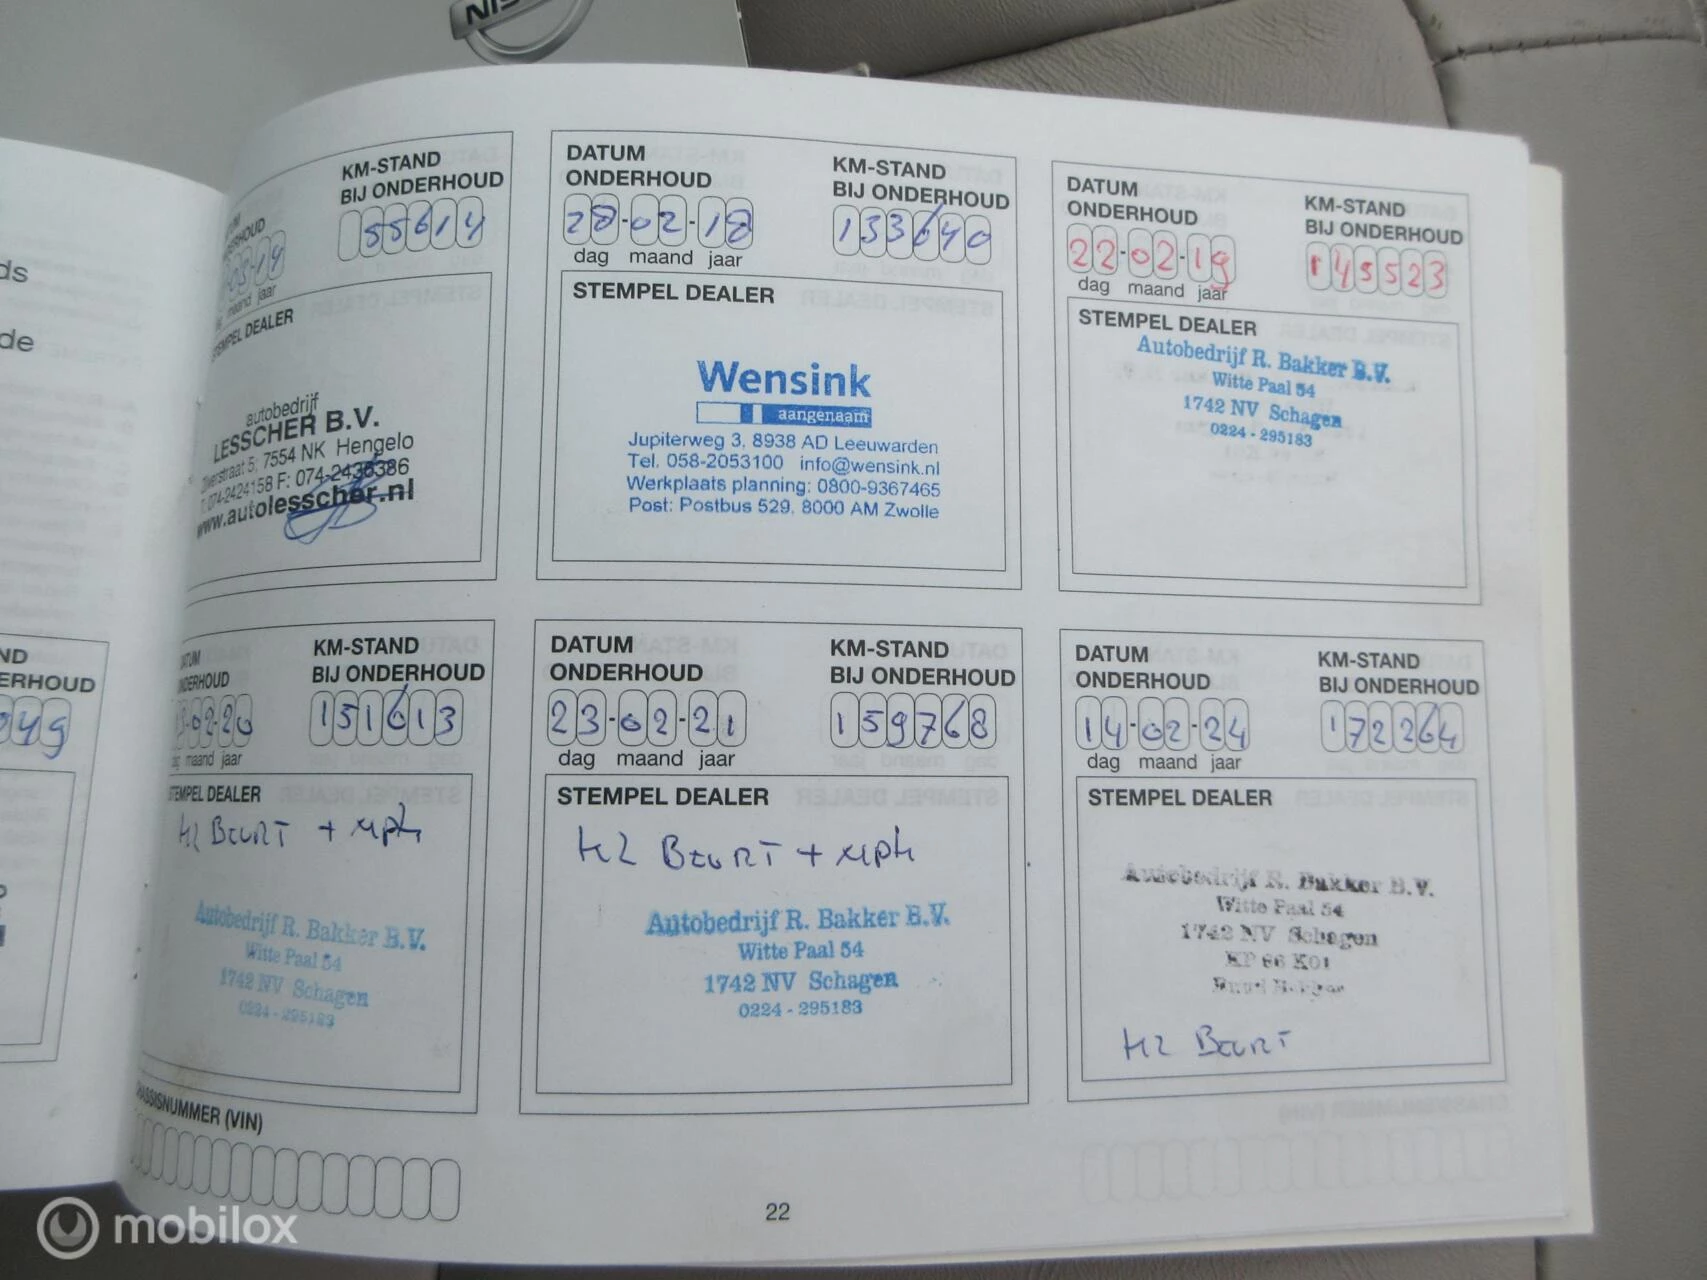 NIS
ds
de
ND
ERHOUD
049
KM-STAND
BIJ ONDERHOUD
55614
03-14
maand jaar
STEMPEL DEALER
autobedrijf
LESSCHER B.V.
7554 NK Hengelo
T: 074-2424158 F: 074-2436386
www.autolesscher.nl
DATUM
ONDERHOUD
KM-STAND
BIJ ONDERHOUD
28-02-18
133640
dag maand jaar
STEMPEL DEALER
Wensink
aangenaam
Jupiterweg 3, 8938 AD Leeuwarden
Tel. 058-2053100 info@wensink.nl
Werkplaats planning: 0800-9367465
Post: Postbus 529, 8000 AM Zwolle
DATUM
ONDERHOUD
KM-STAND
BIJ ONDERHOUD
22-02-19
145523
dag maand jaar
STEMPEL DEALER
Autobedrijf R. Bakker B.V.
Witte Paal 54
1742 NV Schagen
0224 - 295183
KM-STAND
BIJ ONDERHOUD
02-20
151613
maand jaar
STEMPEL DEALER
KL BEURT +
Autobedrijf R. Bakker B.V.
Witte Paal 54
1742 NV Schagen
0224 - 295183
DATUM
ONDERHOUD
KM-STAND
BIJ ONDERHOUD
23-02-21
159768
dag maand jaar
STEMPEL DEALER
KL BEURT +
Autobedrijf R. Bakker B.V.
Witte Paal 54
1742 NV Schagen
0224 - 295183
DATUM
ONDERHOUD
KM-STAND
BIJ ONDERHOUD
14-02-24
172264
dag maand jaar
STEMPEL DEALER
Autobedrijf R. Bakker B.V.
Witte Paal 54
1742 NV Schagen
KL BEURT
HASSISNUMMER (VIN)
22
mobilox